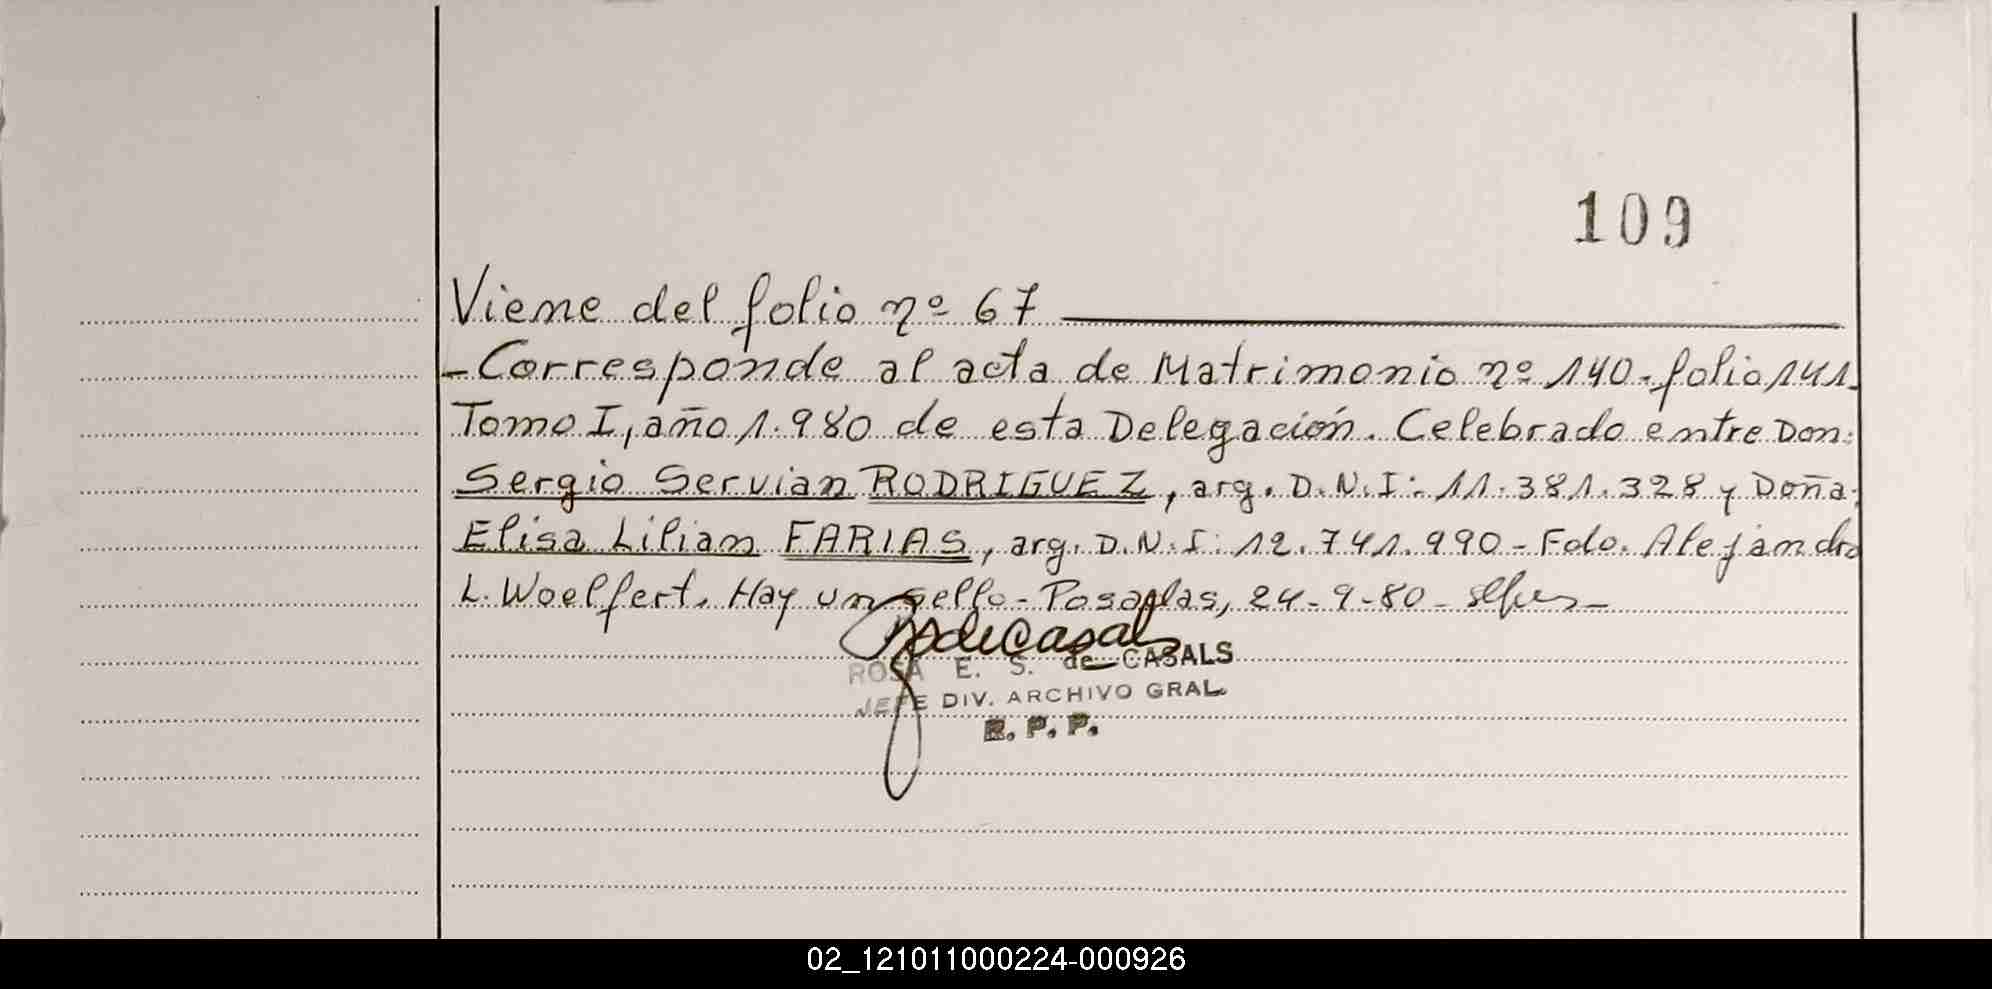 109
Viene del folio nº 67
-Corresponde al acta de Matrimonio nº 140-folio 141-
Tomo I, año 1.980 de esta Delegación. Celebrado entre Don:
Sergio Servian RODRIGUEZ, arg. D.N.I: 11.381.328 y Doña:
Elisa Lilian FARIAS, arg. D.N.I: 12.741.990-Fdo. Alejandro
L. Woelfert. Hay un sello-Posadas, 24-9-80-
ROSA E. S. de CASALS
JEFE DIV. ARCHIVO GRAL.
R. P. P.
02_121011000224-000926